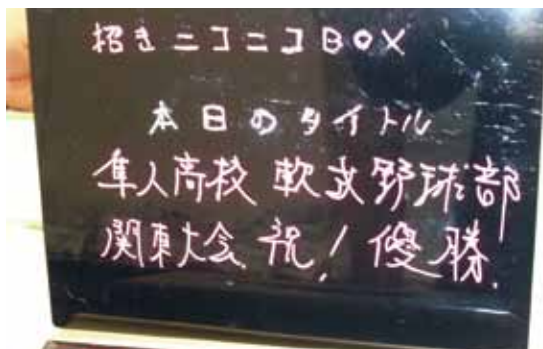 招きニコニコBOX
本日のタイトル
隼人高校 軟式野球部
関東大会 祝!優勝